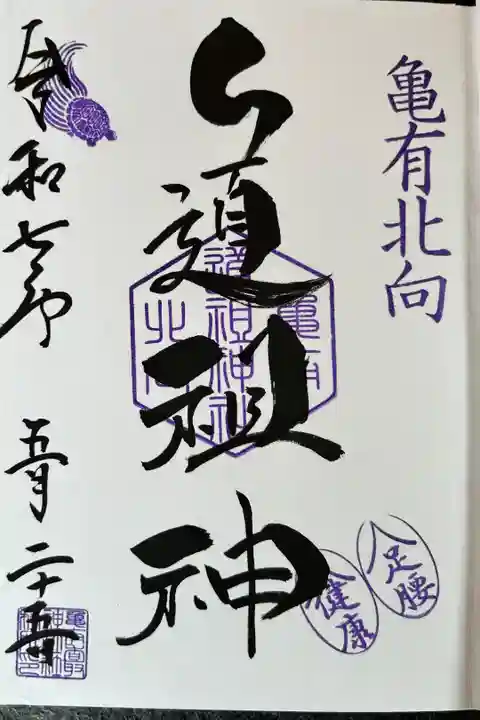 亀有北向
道祖神
亀有
道祖神社
北向
足腰
健康
令和七年 五月二十五日